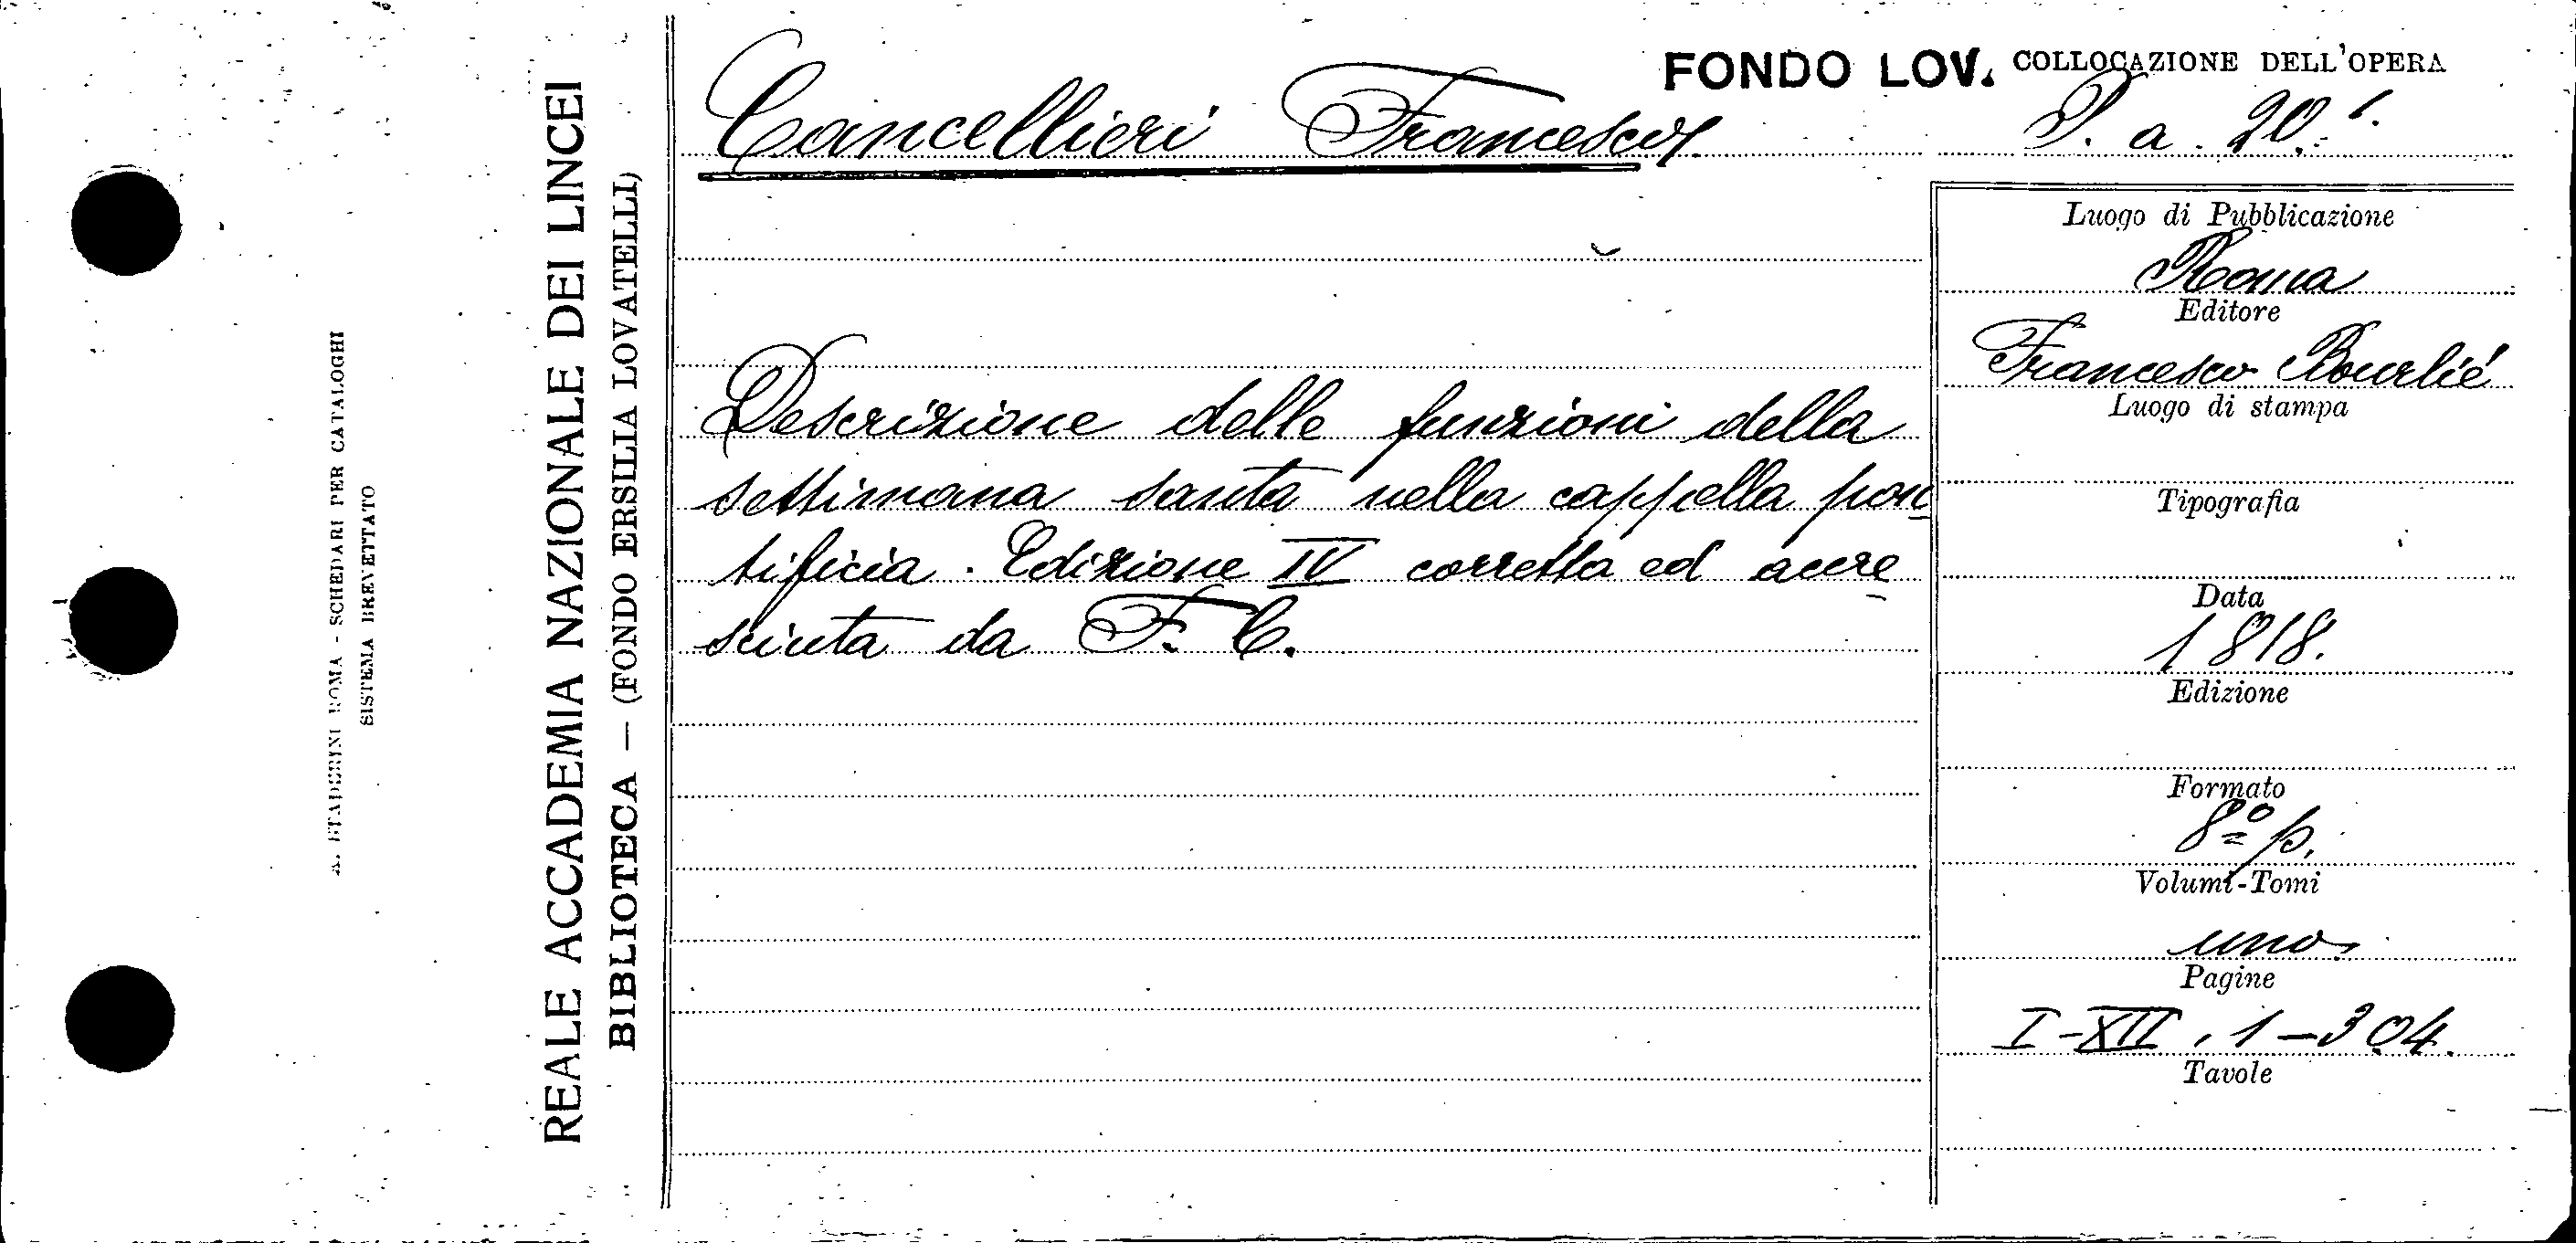 A. STADERINI ROMA - SCHEDARI PER CATALOGHI
SISTEMA BREVETTATO
REALE ACCADEMIA NAZIONALE DEI LINCEI
BIBLIOTECA — (FONDO ERSILIA LOVATELLI)
FONDO LOV. COLLOCAZIONE DELL'OPERA
Cancellieri Francesco
Descrizione delle funzioni della
settimana santa nella cappella pon
tificia. Edizione IV corretta ed accre
sciuta da F. C.
Luogo di Pubblicazione
Roma
Editore
Francesco Bourlié
Luogo di stampa
Tipografia
Data
1818.
Edizione
Formato
8º p.
Volumi-Tomi
uno
Pagine
I-XII, 1-304.
Tavole